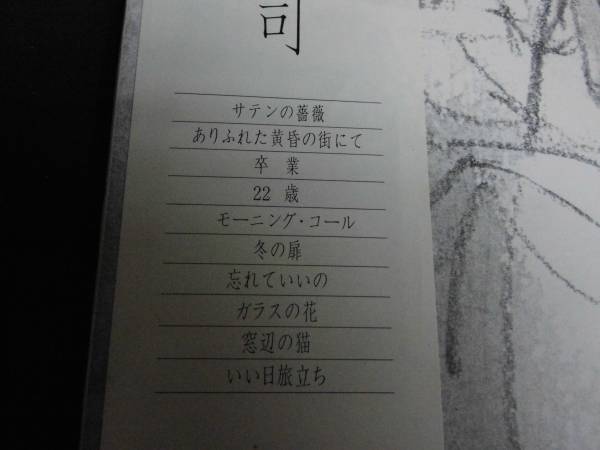 司
サテンの薔薇
ありふれた黄昏の街にて
卒 業
22 歳
モーニング・コール
冬の扉
忘れていいの
ガラスの花
窓辺の猫
いい日旅立ち